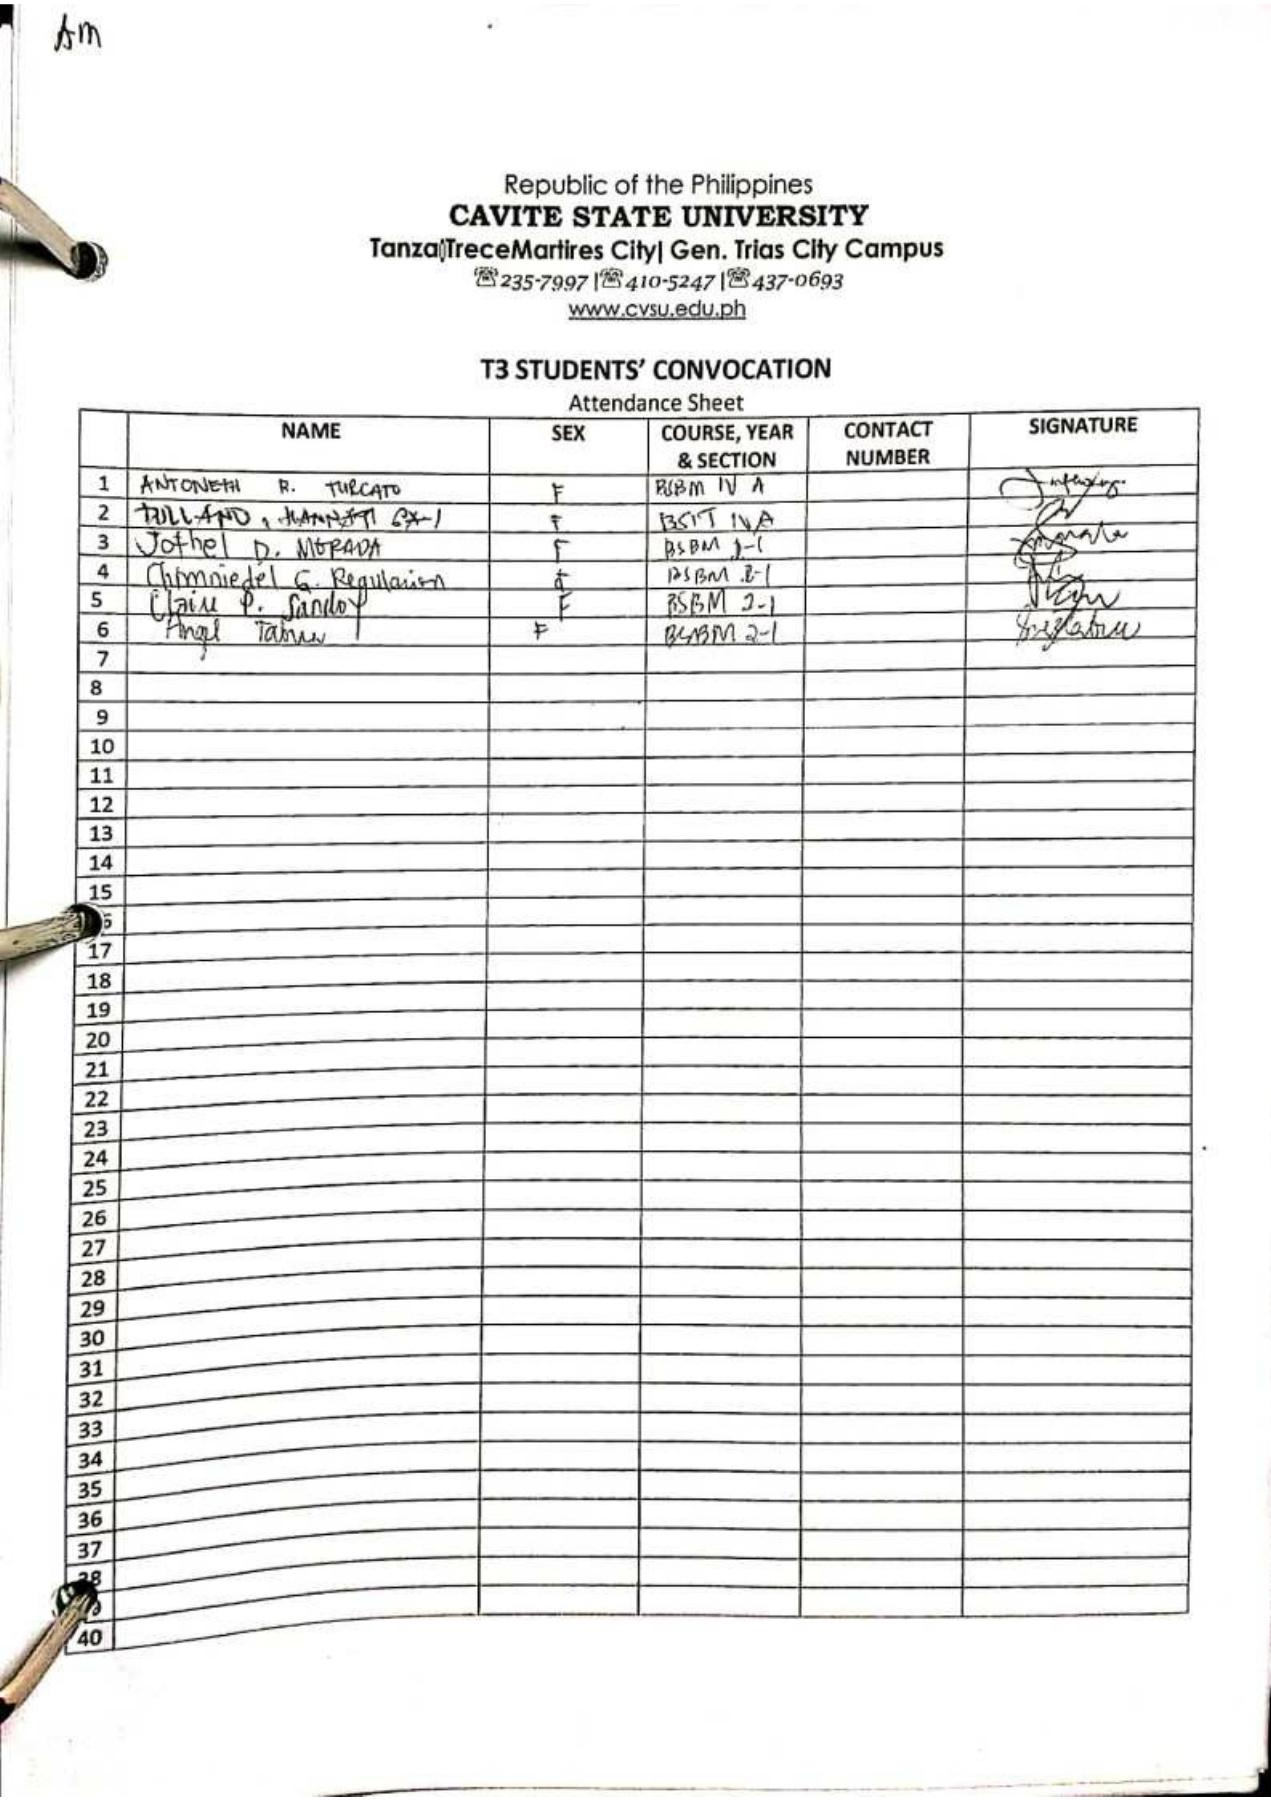 Am
Republic of the Philippines
CAVITE STATE UNIVERSITY
Tanza|TreceMartires City| Gen. Trias City Campus
☏235-7997 |☏410-5247 |☏437-0693
www.cvsu.edu.ph
T3 STUDENTS' CONVOCATION
Attendance Sheet
NAME SEX COURSE, YEAR & SECTION CONTACT NUMBER SIGNATURE
1 ANTONETH R. TURCATO F BSBM IV A
2 F BSIT IV A
3 Jothel D. MORADA F BSBM
4 G. Regulacion F BSBM 2-1
5 Claire P. Sandoy F BSBM 2-1
6 Angel F BSBM 2-1
7
8
9
10
11
12
13
14
15
17
18
19
20
21
22
23
24
25
26
27
28
29
30
31
32
33
34
35
36
37
38
40